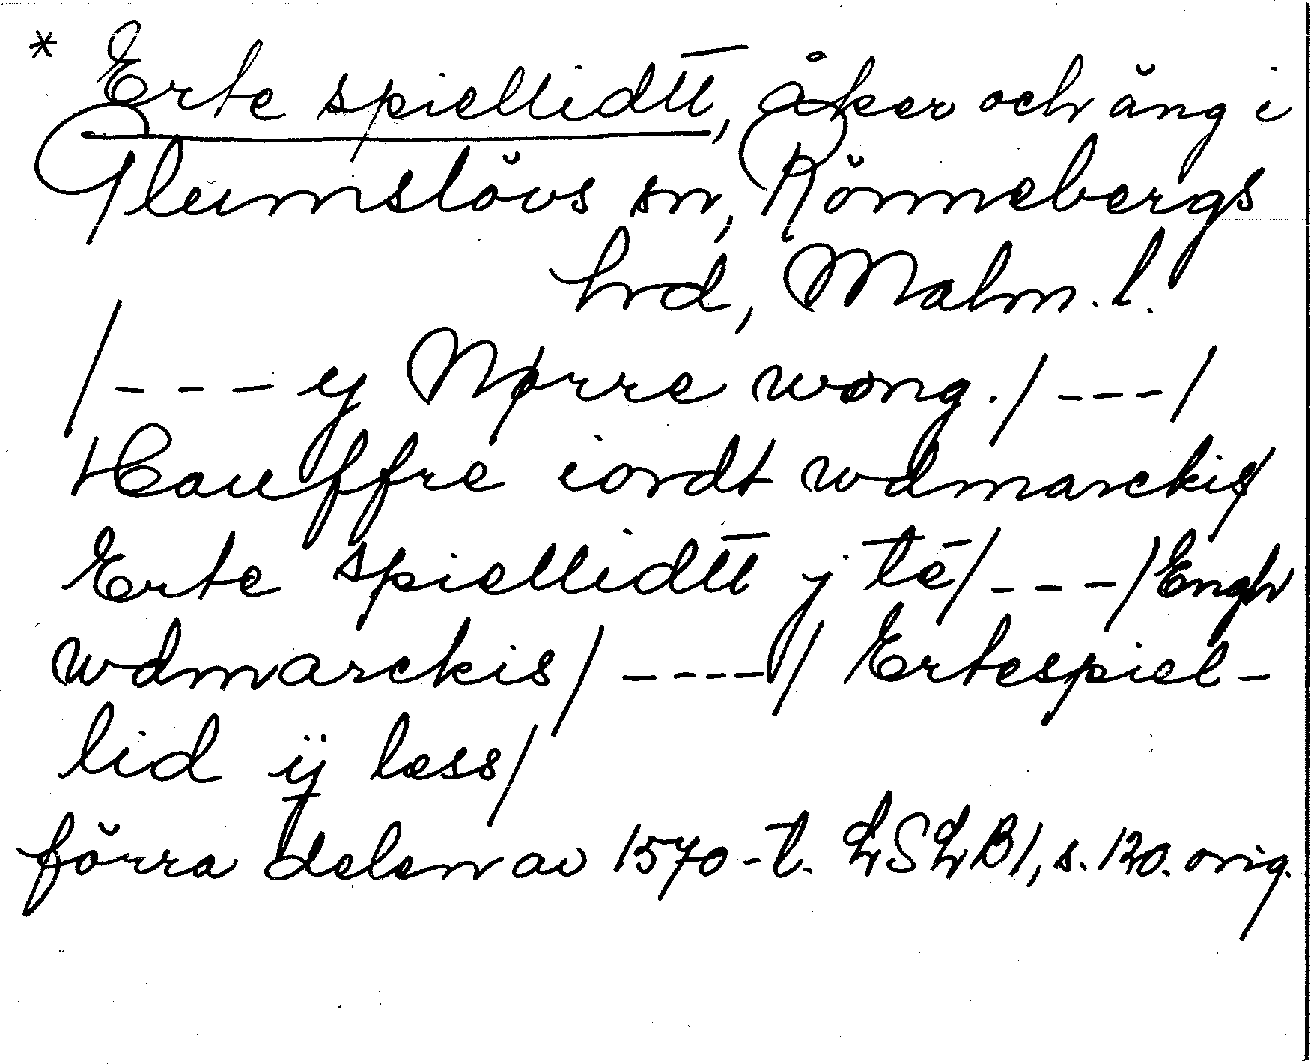 * Erte spiellidtt̄, åker och äng i
Glumslövs sn, Rönnebergs
hrd, Malm. l.
/--- y Nørre wong./ ---/
Hauffre iordt wdmarckis/
Erte spiellidtt̄ j tē/ ---/ Engh
wdmarckis/ ----/ Ertespiel-
lid ÿ less/
förra delen av 1570-t. LSLB1, s. 120. orig.